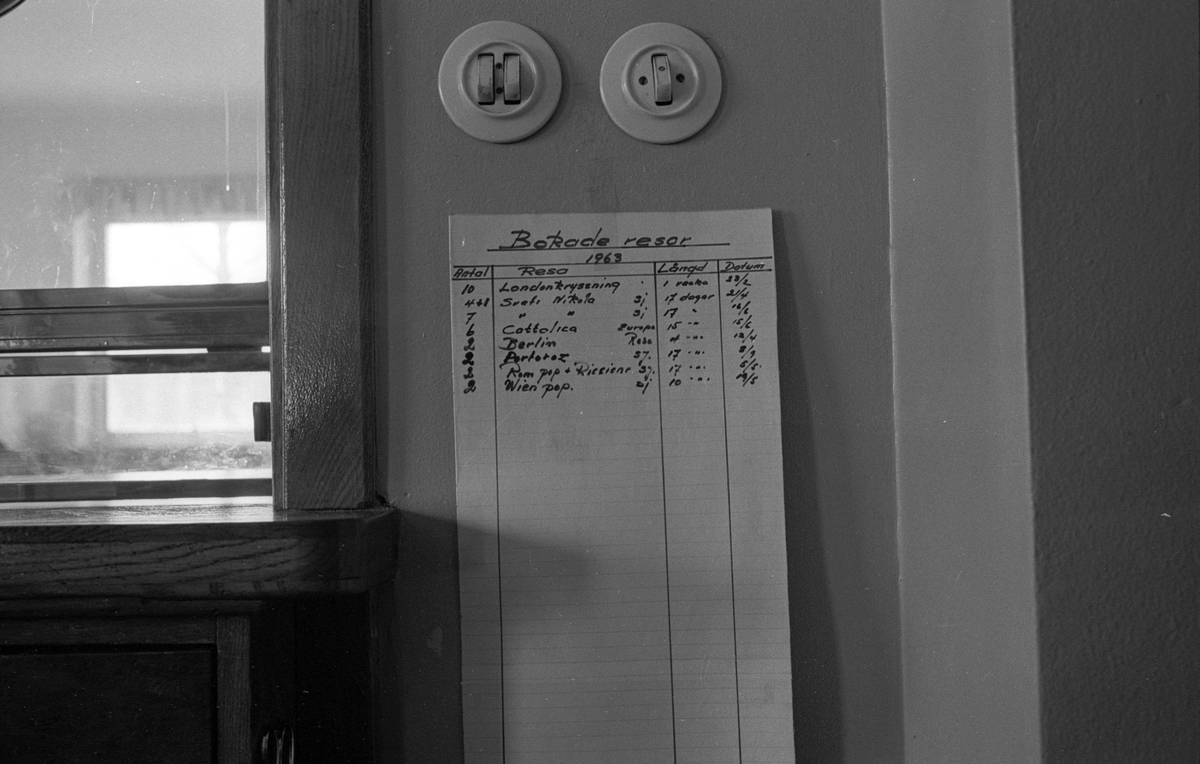 Bokade resor
1963
Antal Resa Längd Datum
10 Londonkryssning 1 vecka 23/2
4+8 Sveti Nikola 3j 17 dagar 21/4
7 " " 3j 17 "
6 Cattolica Europa 15 -"- 15/6
2 Berlin Resa 4 -"- 12/4
2 Portoroz 17 -"-
2 Rom pop + 17 -"- 5/5
2 Wien pop. 2j 10 -"-